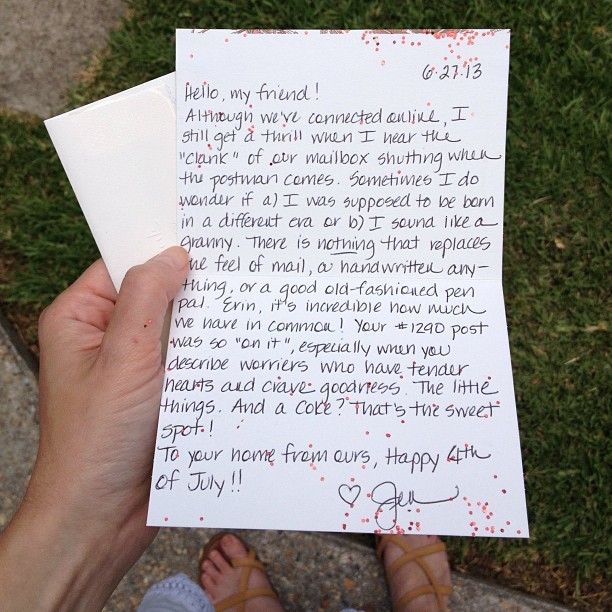 6.27.13
Hello, my friend!
Although we've connected online, I
still get a thrill when I hear the
"clank" of our mailbox shutting when
the postman comes. Sometimes I do
wonder if a) I was supposed to be born
in a different era or b) I sound like a
granny. There is nothing that replaces
the feel of mail, a handwritten any-
thing, or a good old-fashioned pen
pal. Erin, it's incredible how much
we have in common! Your #1290 post
was so "on it", especially when you
describe worriers who have tender
hearts and crave goodness. The little
things. And a Coke? That's the sweet
spot!
To your home from ours, Happy 4th
of July!!
♡ Jen